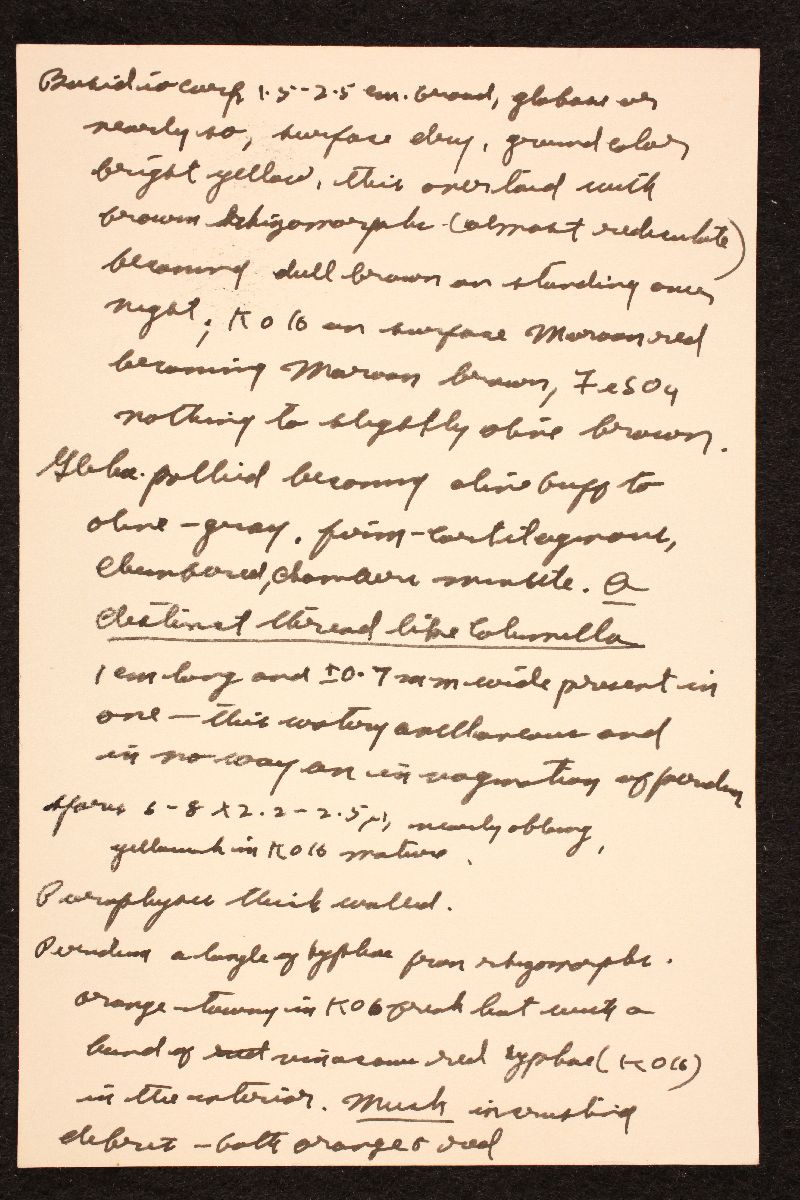 Basidiocarp 1.5-2.5 cm. broad, globose or
nearly so, surface dry, ground color
bright yellow, this overlaid with
brown rhizomorphs (almost rediculate)
becoming dull brown on standing over
night; KOH on surface Maroon red
becoming Maroon brown, FeSO4
nothing to slightly olive brown.
Gleba pallid becoming olive buff to
olive-gray, firm-cartilaginous,
chambered, chambers minute. A
distinct thread like Columella
1 cm long and ±0.7 mm wide present in
one - this watery avellaneous and
in no way an invagination of peridium
spores 6-8 X 2.2-2.5 μ, nearly oblong,
yellowish in KOH mature.
Paraphyses thick walled.
Peridium a tangle of hyphae from rhizomorphs.
orange-tawny in KOH fresh but with a
band of vinaceous red hyphae (KOH)
in the interior. Much incrusting
debris - both orange & red